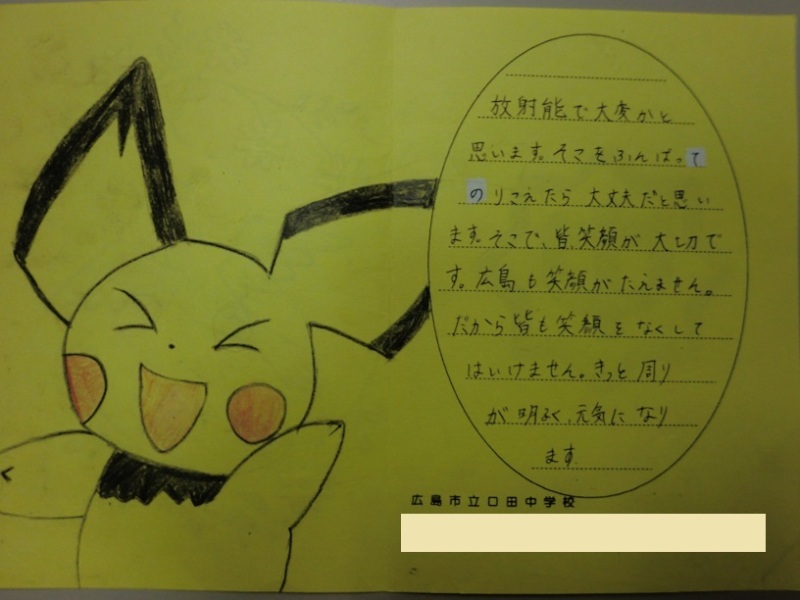 放射能で大変かと
思います。そこをふんばって
のりこえたら大丈夫だと思い
ます。そこで、皆、笑顔が大切で
す。広島も笑顔がたえません。
だから皆も笑顔をなくして
はいけません。きっと周り
が明るく、元気になり
ます
広島市立口田中学校